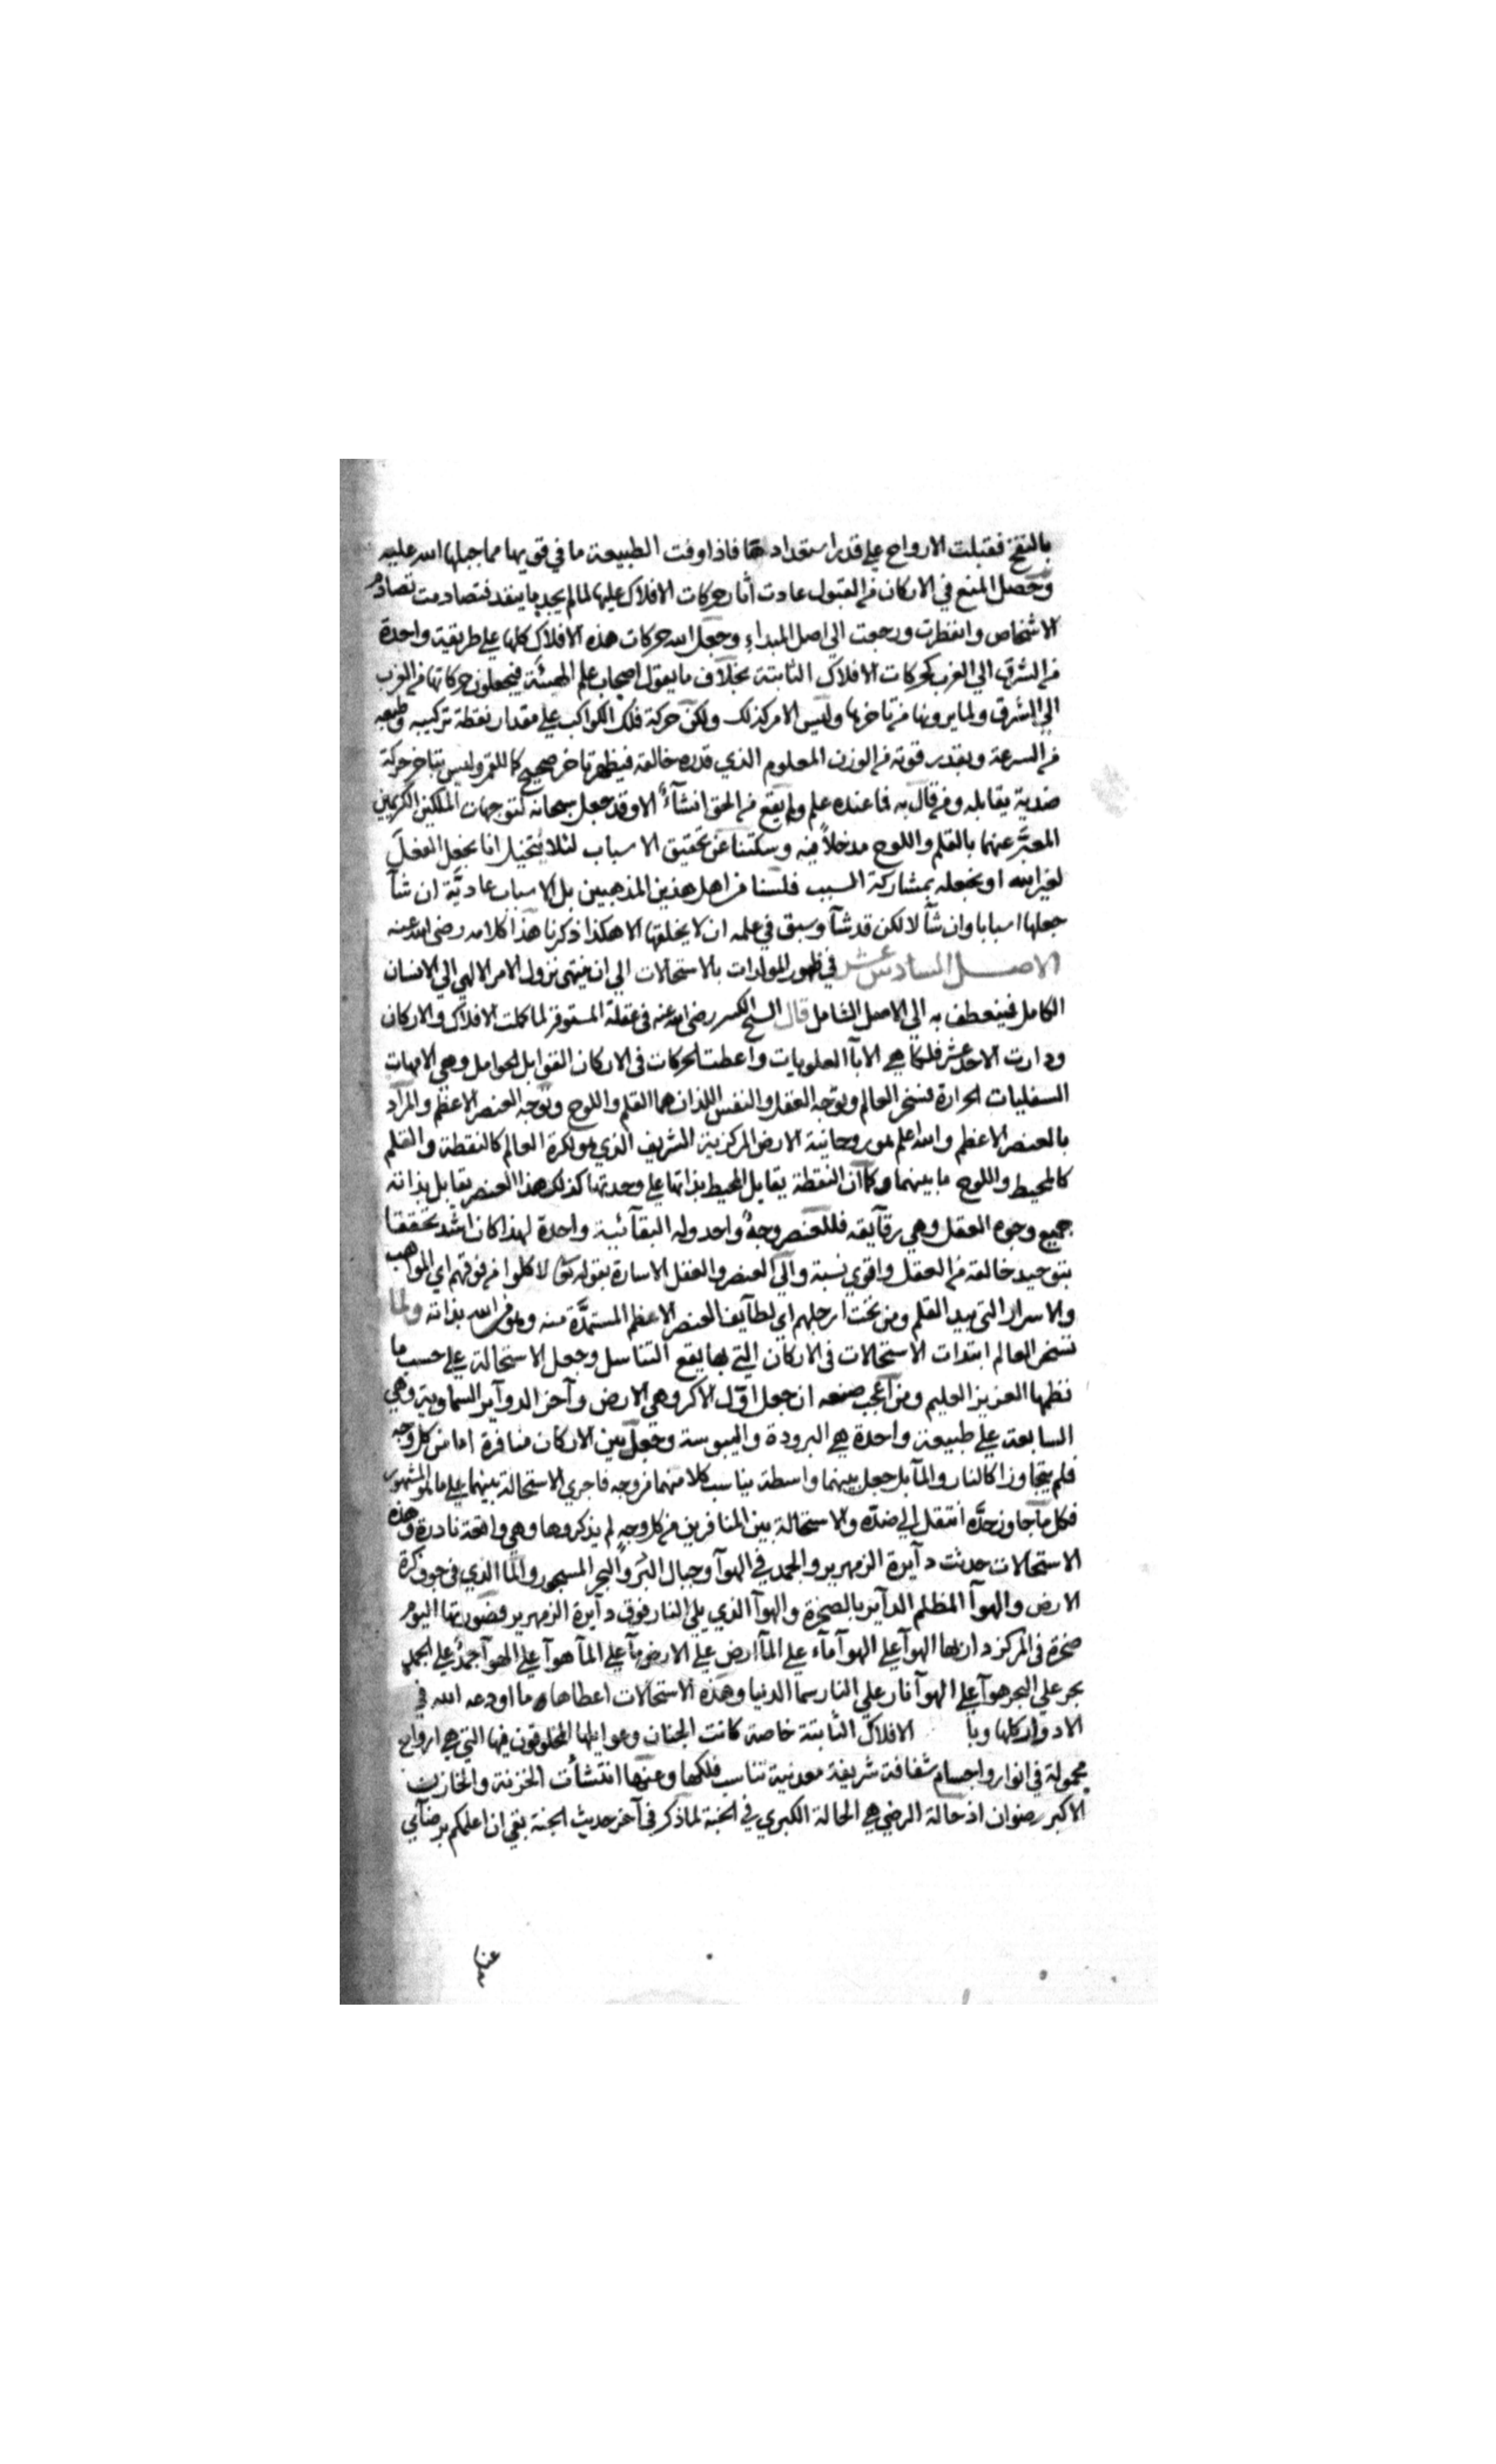 بالنفخ فقبلت الارواح على قدر استعدادها فاذا وفت الطبيعة ما في قويها مما جبلها الله عليه
وحصل المنع في الاركان من القبول عادت آثار حركات الافلاك عليها لما لم يجد ما ينفد فتصادمت تصادم
الاشخاص وانفطرت ورجعت الي اصل المبداء وجعل الله حركات هذه الافلاك كلها على طريقة واحدة
من الشرق الي الغرب كحركات الافلاك الثابتة بخلاف ما يقول اصحاب علم الهيئة فيجعلون حركاتها من الغرب
الي الشرق ولما يرونها من تاخرها وليس الامر كذلك ولكن حركة فلك الكواكب على مقدار نقطة تركيبه وطبعه
من السرعة وبقدر قوته من الوزن المعلوم الذي قدره خالقه فيظهر تاخر صحيح كما للقمر وليس بتاخر حركة
ضدية يقابله ومن قال به فما عنده علم ولم يقع من الحق انشآءٌ الا وقد جعل سبحانه لتوجهات الملكين الكريمين
المعبّر عنهما بالقلم واللوح مدخلاً فيه وسكتنا عن تحقيق الاسباب لئلا يتخيل انا نجعل الفعل
لغير الله او نجعله بمشاركة السبب فلسنا من اهل هذين المذهبين بل الاسباب عاديّة ان شآ
جعلها اسبابا وان شآ لا لكن قد شآ وسبق في علمه ان لا يخلقها الا هكذا ذكرنا هذا كلامه رضى الله عنه
الاصل السادس عشر في ظهور المولدات بالاستحالات الي ان ينتهى نزول الامر الالهي الي الانسان
الكامل فينعطف به الي الاصل الشامل قال الشيخ الكبير رضى الله عنه فى عقلة المستوفز لما كملت الافلاك والاركان
ودارت الاحد عشر فلكا هي الابآ العلويات واعطت الحركات فى الاركان القوابل الحوامل وهي الامهات
السفليات الحرارة فسخن العالم وتوجه العقل والنفس اللذان هما القلم واللوح وتوجه العنصر الاعظم والمراد
بالعنصر الاعظم والله اعلم هو روحانية الارض المركزية الشريف الذي هو لكرة العالم كالنقطة والقلم
كالمحيط واللوح ما بينهما وكما ان النقطة يقابل المحيط بذاتها على وحدتها كذلك هذا العنصر يقابل بذاته
جميع وجوه العقل وهي رقآيقه فللعنصر وجهٌ واحد وله البقآئية واحدة لهذا كان اشد تحققا
بتوحيد خالقه من العقل واقوي نسبة والي العنصر والعقل الاشارة بقوله تعا لاكلوا من فوقهم اي المواهب
والاسرار التى بيد القلم ومن تحت ارجلهم اي لطآيف العنصر الاعظم المستمدّة منه وهو من الله بذاته ولما
تسخن العالم ابتدات الاستحالات فى الاركان التي بها يقع التناسل وجعل الاستحالة على حسب ما
نظمها العزيز العليم ومن اعجب صنعه ان جعل اوّل الاكر وهي الارض وآخر الدوآير السماوية وهي
السابعة على طبيعة واحدة هي البرودة واليبوسة وجعل بين الاركان منافرة اما من كل وجه
فلم يتجاوزا كالنار والمآ بل جعل بينهما واسطة يناسب كلا منهما من وجه فاجري الاستحالة بينهما على ما هو المشهور
فكل ما جاوز حدّه انتقل الي ضدّه والاستحالة بين المنافرين من كل وجهٍ لم يذكروها وهي واقعة نادرة وهذه
الاستحالات حدثت دآيرة الزمهرير والجمد في الهوآ وجبال البرَد والبحر المسجور والما الذي فى جوف كرة
الارض والهوآ المظلم الدآير بالصخرة والهوآ الذي يلى النار فوق دآيرة الزمهرير فصورتها اليوم
صخرة فى المركز دار بها الهوآ على الهوآ مآء على المآ ارض على الارض مآ على المآ هوآ على الهوآ جمدٌ على الجمد
بحر على البحر هوآ على الهوآ نار على النار سما الدنيا وهذه الاستحالات اعطاها ما اودعه الله في
الادوار كلها وبا الافلاك الثابتة خاصة كانت الجنان وعوابلها المخلوقون فيها التي هي ارواح
محمولة في انوار واجسام شفافة شريفة معدنية تناسب فلكها وعنها انتشأت الخزنة والخازن
الاكبر رضوان اذ حالة الرضي هي الحالة الكبري في الجنة لما ذكر فى آخر حديث الجنة بقي ان اعلمكم برضآيي
عنكم